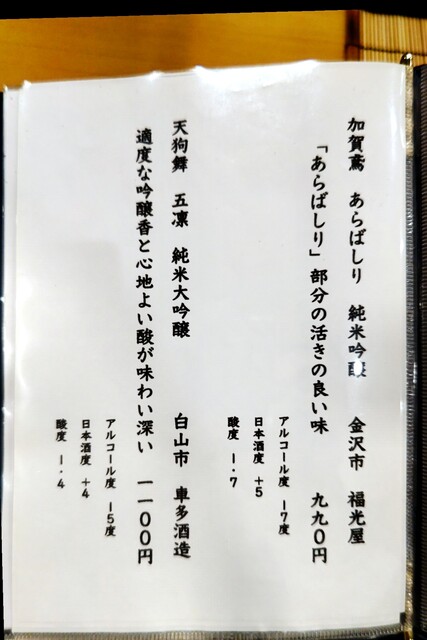 加賀鳶 あらばしり 純米吟醸 金沢市 福光屋
「あらばしり」部分の活きの良い味 九九〇円
アルコール度 17度
日本酒度 +5
酸度 1.7
天狗舞 五凛 純米大吟醸 白山市 車多酒造
適度な吟醸香と心地よい酸が味わい深い 一一〇〇円
アルコール度 15度
日本酒度 +4
酸度 1.4